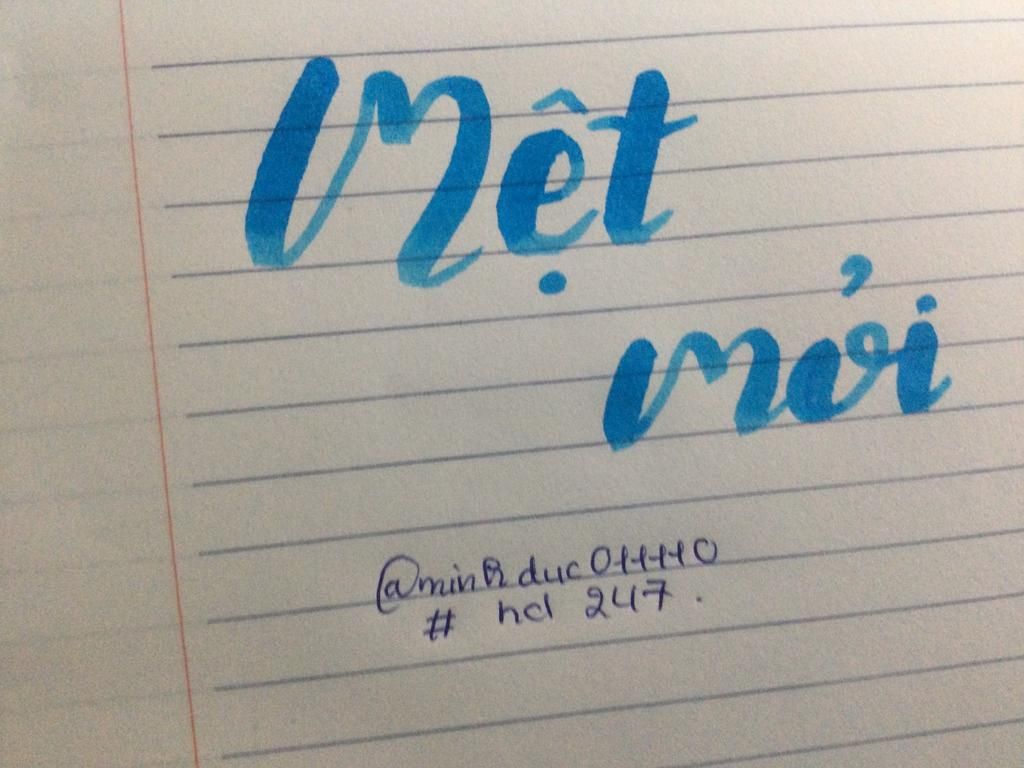 Mệt
mỏi
@minhduc011110
# hd 247.